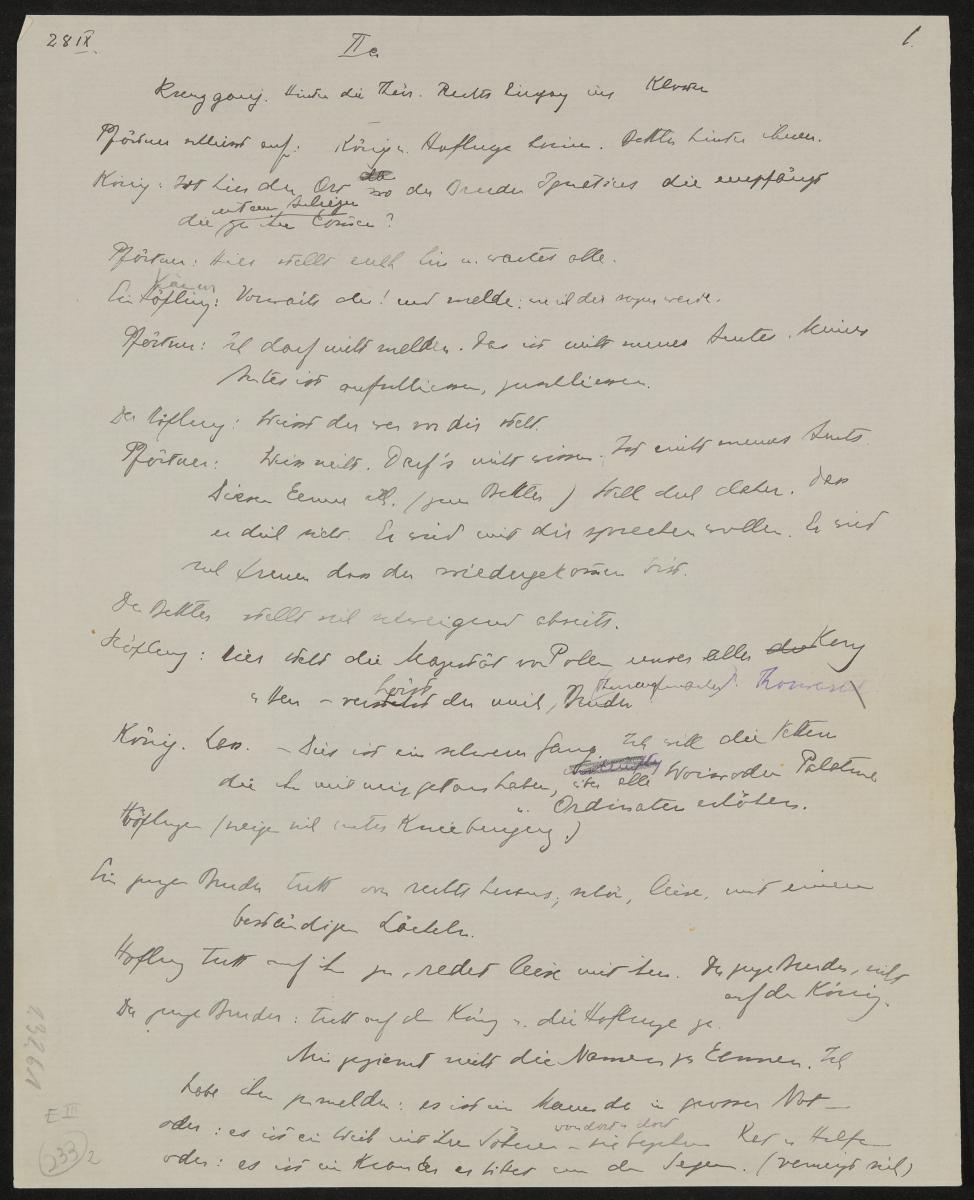 28 IX.
II a
1.
Kreuzgang. Hinten die Thür. Rechts Eingang ins Kloster
Pförtner schliesst auf: König u. Höflinge herein. Bettler hinter ihnen.
König: Ist hier der Ort wo der Bruder Ignatius die empfängt
mit dem Anliegen
die zu ihm kommen?
Pförtner: Hier stellt euch hin u. wartet alle.
Ein Höfling: Vorwärts du! und melde: was ich dir sagen werde.
Pförtner: Ich darf nicht melden. Das ist nicht meines Amtes. Meines
Amtes ist aufschliessen, zuschliessen.
Der Höfling: Weisst du wer vor dir steht.
Pförtner: Weiss nicht. Darf's nicht wissen. Ist nicht meines Amts.
Diesen kenne ich. (zum Bettler) Stell dich daher. dass
er dich sieht. Er wird mit dir sprechen wollen. Er wird
sich freuen dass du wiedergekommen bist.
Der Bettler stellt sich schweigend abseits.
Höfling: hier steht die Majestät von Polen unser aller König
u Herr – verstehst du mich, Bruder
König. Lass. – Dies ist ein schwerer Gang. Ich will die Vettern
die ihn mit mir getan haben, über alle Woiwoden Palatine
u. Ordinaten erhöhen.
Höflinge (neigen sich unter Kniebeugung.)
Ein junger Bruder tritt von rechts heraus; schön, leise, mit einem
beständigen Lächeln.
Höfling tritt auf ihn zu, redet leise mit ihm. Der junge Bruder, sieht
auf den König.
Der junge Bruder: tritt auf den König u. die Höflinge zu.
Mir geziemt nicht die Namen zu kennen. Ich
habe ihm zu melden: es ist ein in grosser Not –
von dort u dort
oder: es ist ein Weib mit ihren Söhnen – sie begehren Rat u Hilfe
oder: es ist ein Kranker er bittet um den Segen. (verneigt sich)
E III
233
2